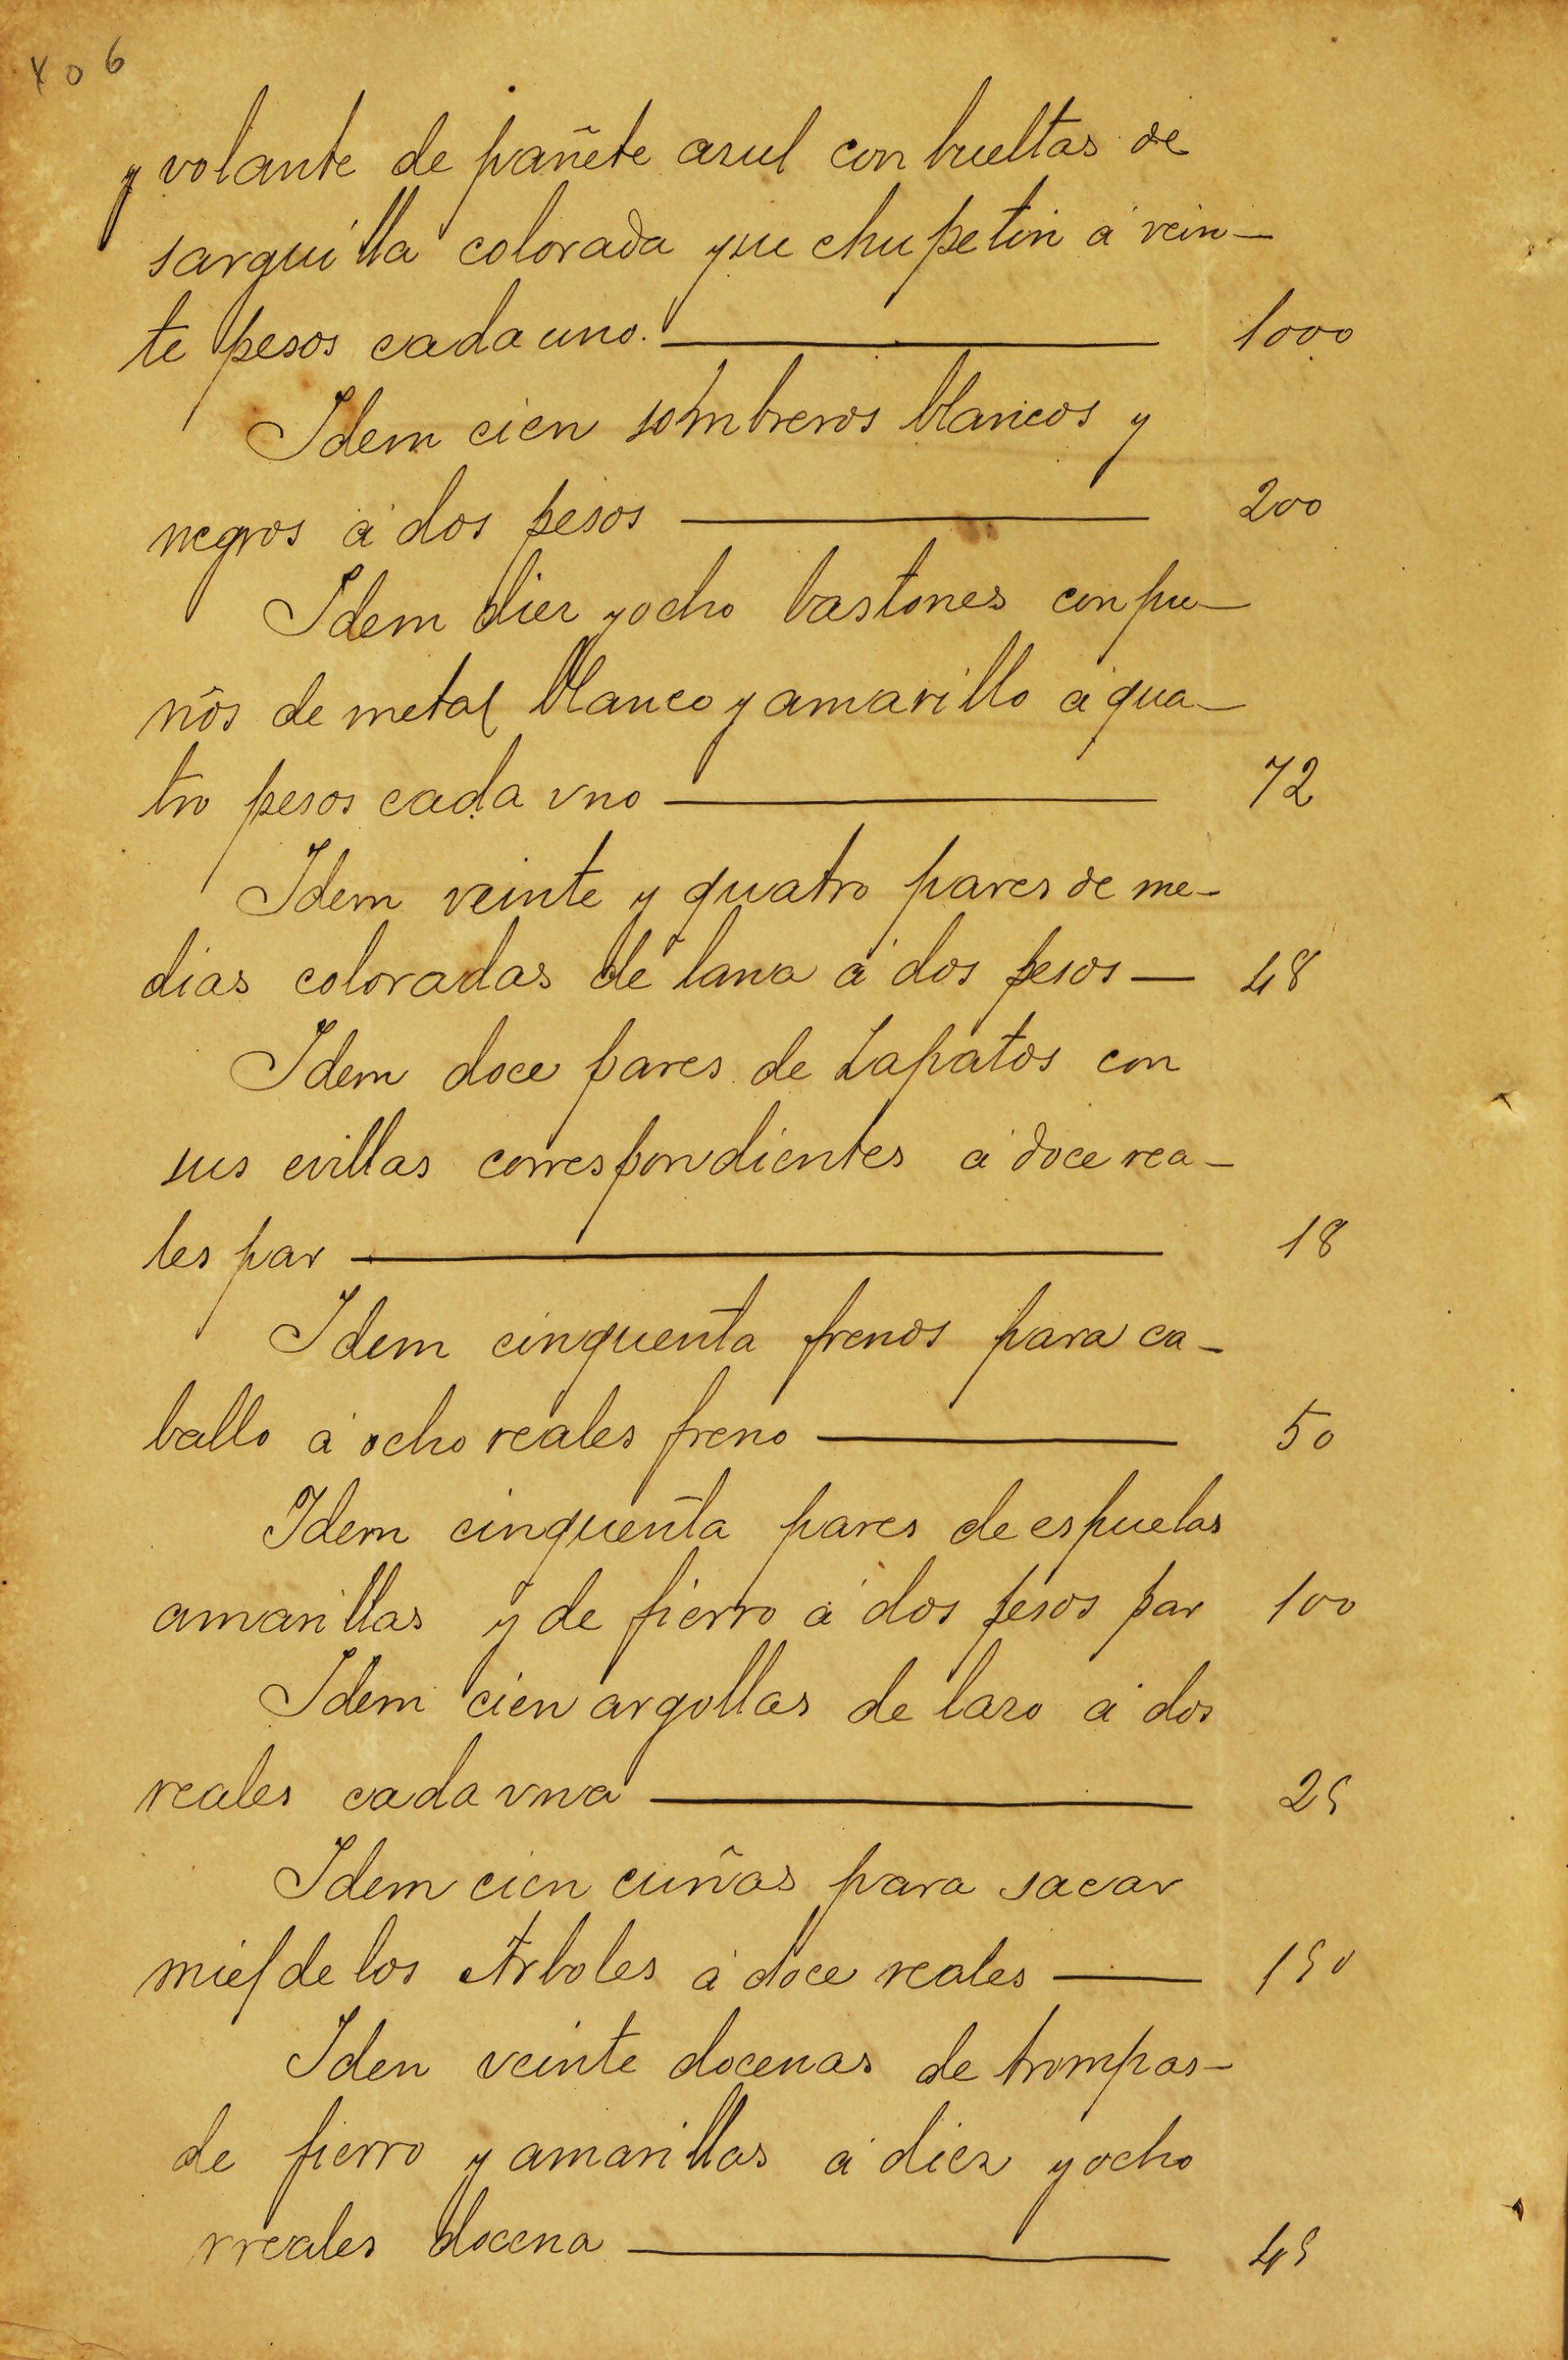 406
y volante de pañete asul con bueltas de
sarguilla colorada y su chupetin á vein-
te pesos cada uno. 1000
Idem cien sombreros blancos y
negros á dos pesos 200
Idem diez y ocho bastones con pu-
ños de metal blanco y amarillo á qua-
tro pesos cada vno 72
Idem veinte y quatro pares de me-
dias coloradas de lana á dos pesos 48
Idem doce pares de zapatos con
sus evillas correspondientes á doce rea-
les par 18
Idem cinquenta frenos para ca-
ballo á ocho reales freno 50
Idem cinquenta pares de espuelas
amarillas y de fierro á dos pesos par 100
Idem cien argollas de lazo á dos
reales cada vna 25
Idem cien cuñas para sacar
miel de los Arboles á doce reales 150
Iden veinte docenas de trompas-
de fierro y amarillas á diez y ocho
rreales docena 45